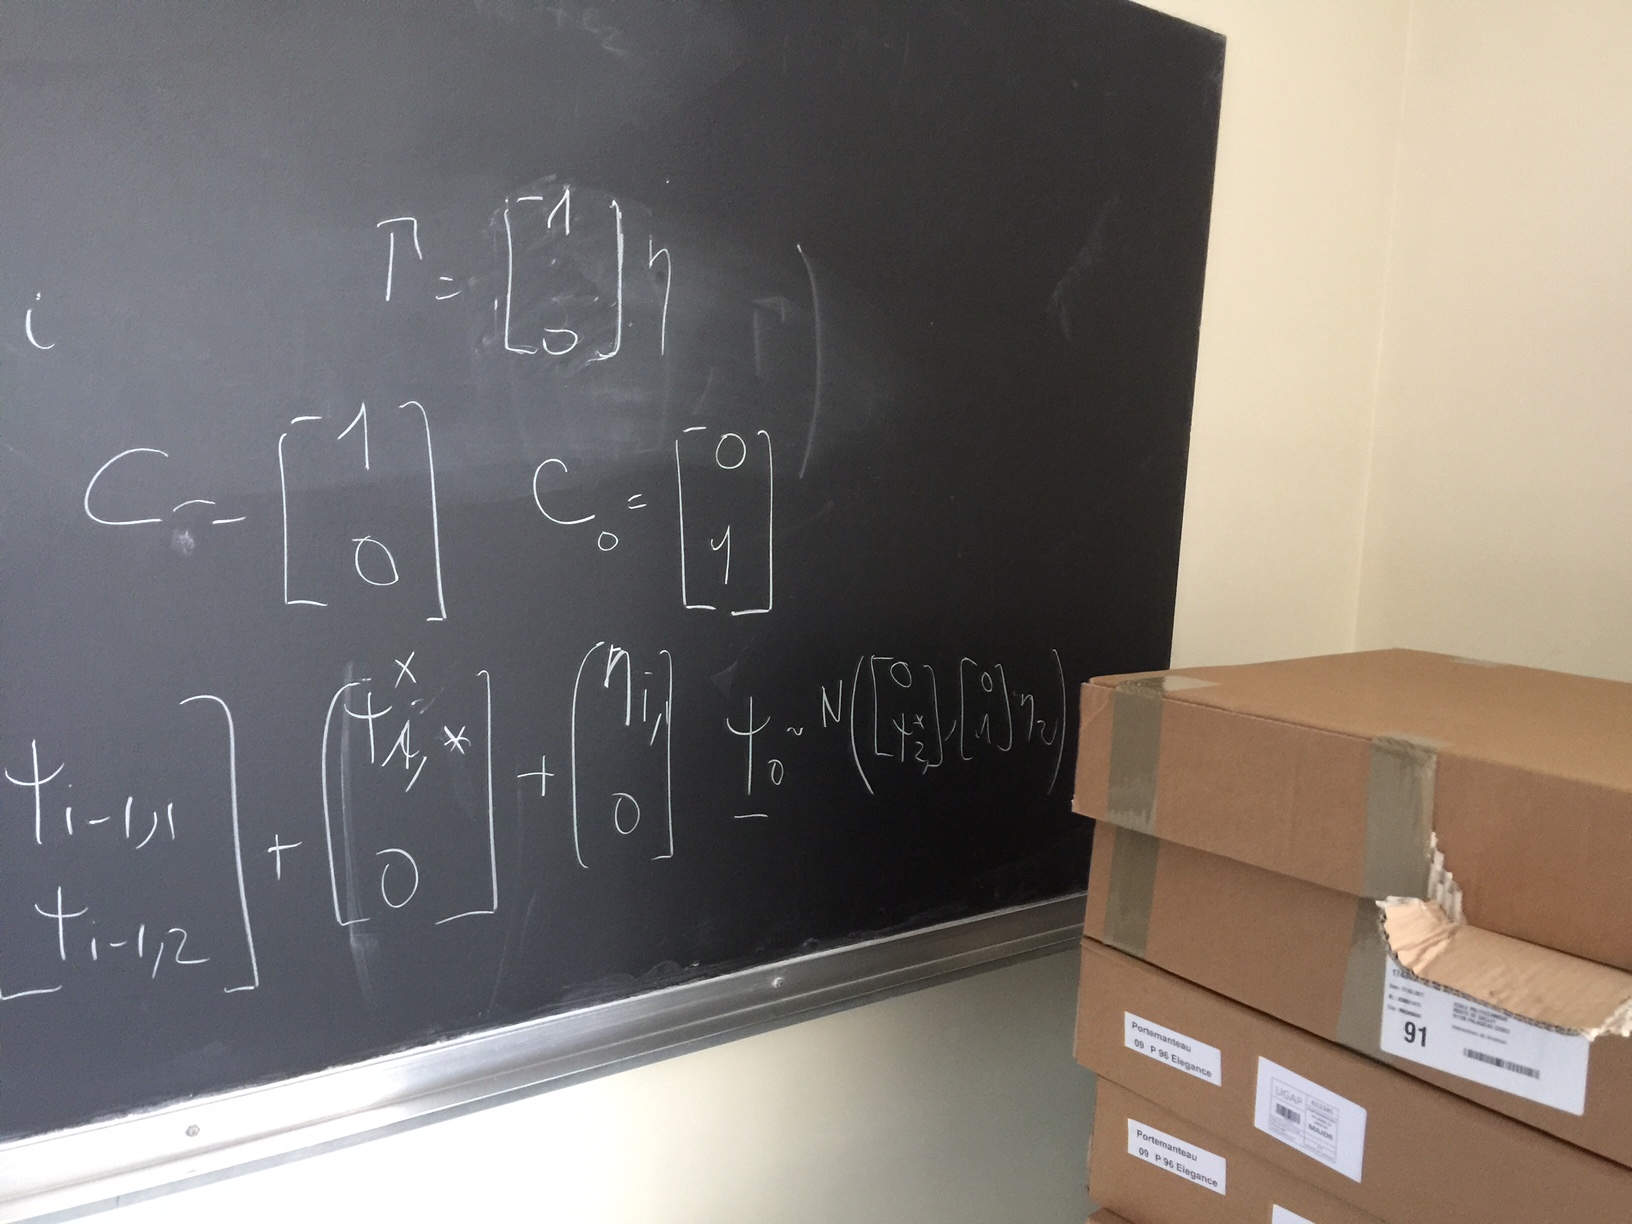 Γ = [1 0] η
i
C = [1 0] C₀ = [0 1]
[ψᵢ₋₁,₁ ψᵢ₋₁,₂] + [ψ*₁,* 0] + [ηᵢ,₁ 0] ψ₀ ~ N([0 ψ*₂], [0 1] η₂)
91
Portemanteau
09 P 96 Elegance
UGAP
MAJOR
Portemanteau
09 P 96 Elegance